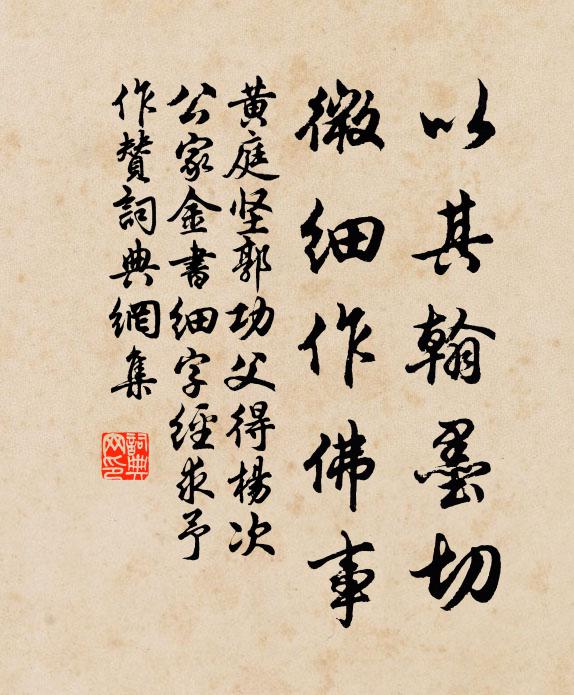 以其翰墨切
微细作佛事
黄庭坚郭功父得杨次
公家金书细字经求予
作赞词典网集
詞典网印